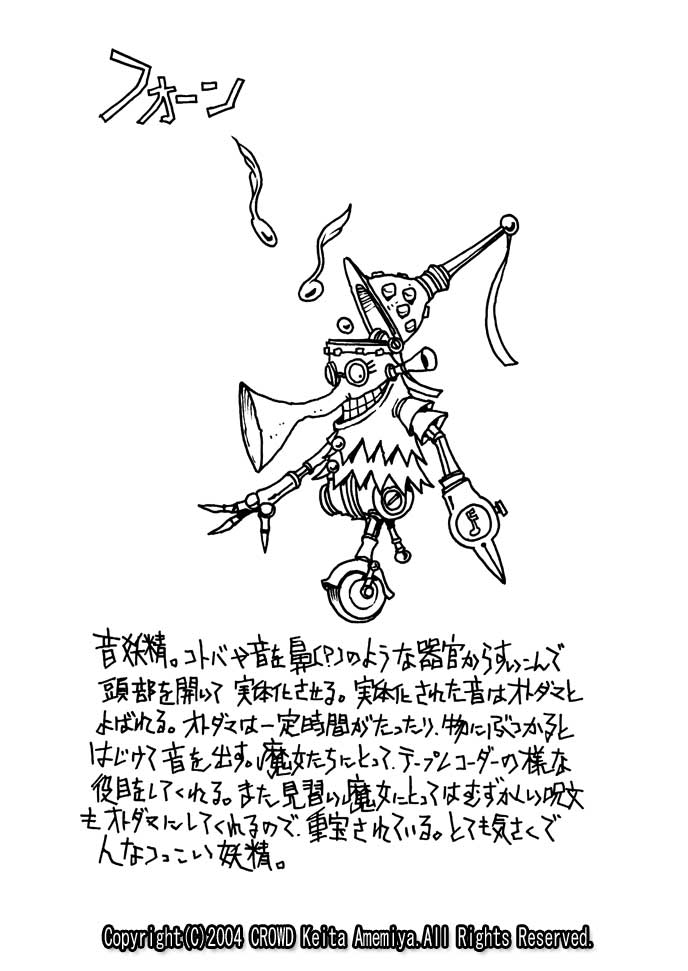 フォーン
音妖精。コトバや音を鼻(?)のような器官からすいこんで
頭部を開いて実体化させる。実体化された音はオトダマと
よばれる。オトダマは一定時間がたったり、物にぶつかると
はじけて音を出す。魔女たちにとって、テープレコーダーの様な
役目をしてくれる。また見習い魔女にとってはむずかしい呪文
もオトダマにしてくれるので、重宝されている。とても気さくで
人なつっこい妖精。
Copyright(C)2004 CROWD Keita Amemiya.All Rights Reserved.